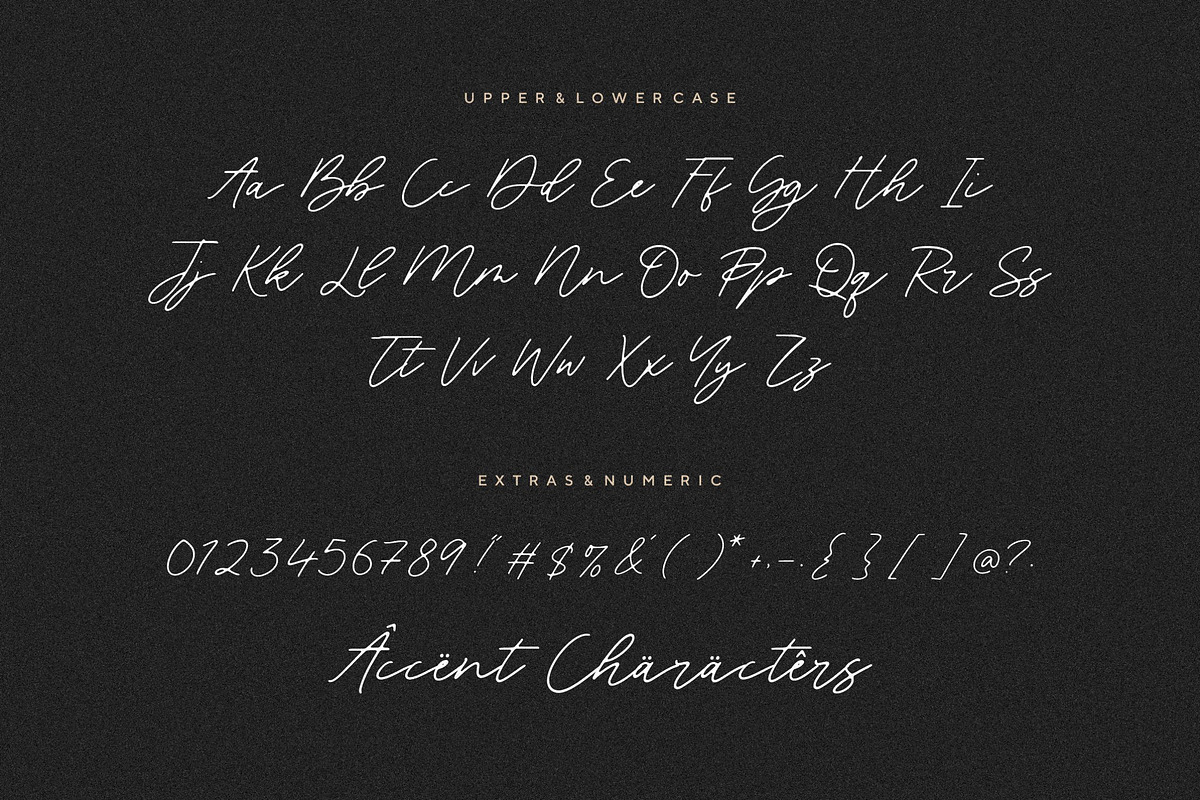 UPPER & LOWERCASE
Aa Bb Cc Dd Ee Ff Gg Hh Ii
Jj Kk Ll Mm Nn Oo Pp Qq Rr Ss
Tt Vv Ww Xx Yy Zz
EXTRAS & NUMERIC
0123456789!" #$%&'( )*+,-.{ }[ ]@?.
Âccënt Chäräctêrs